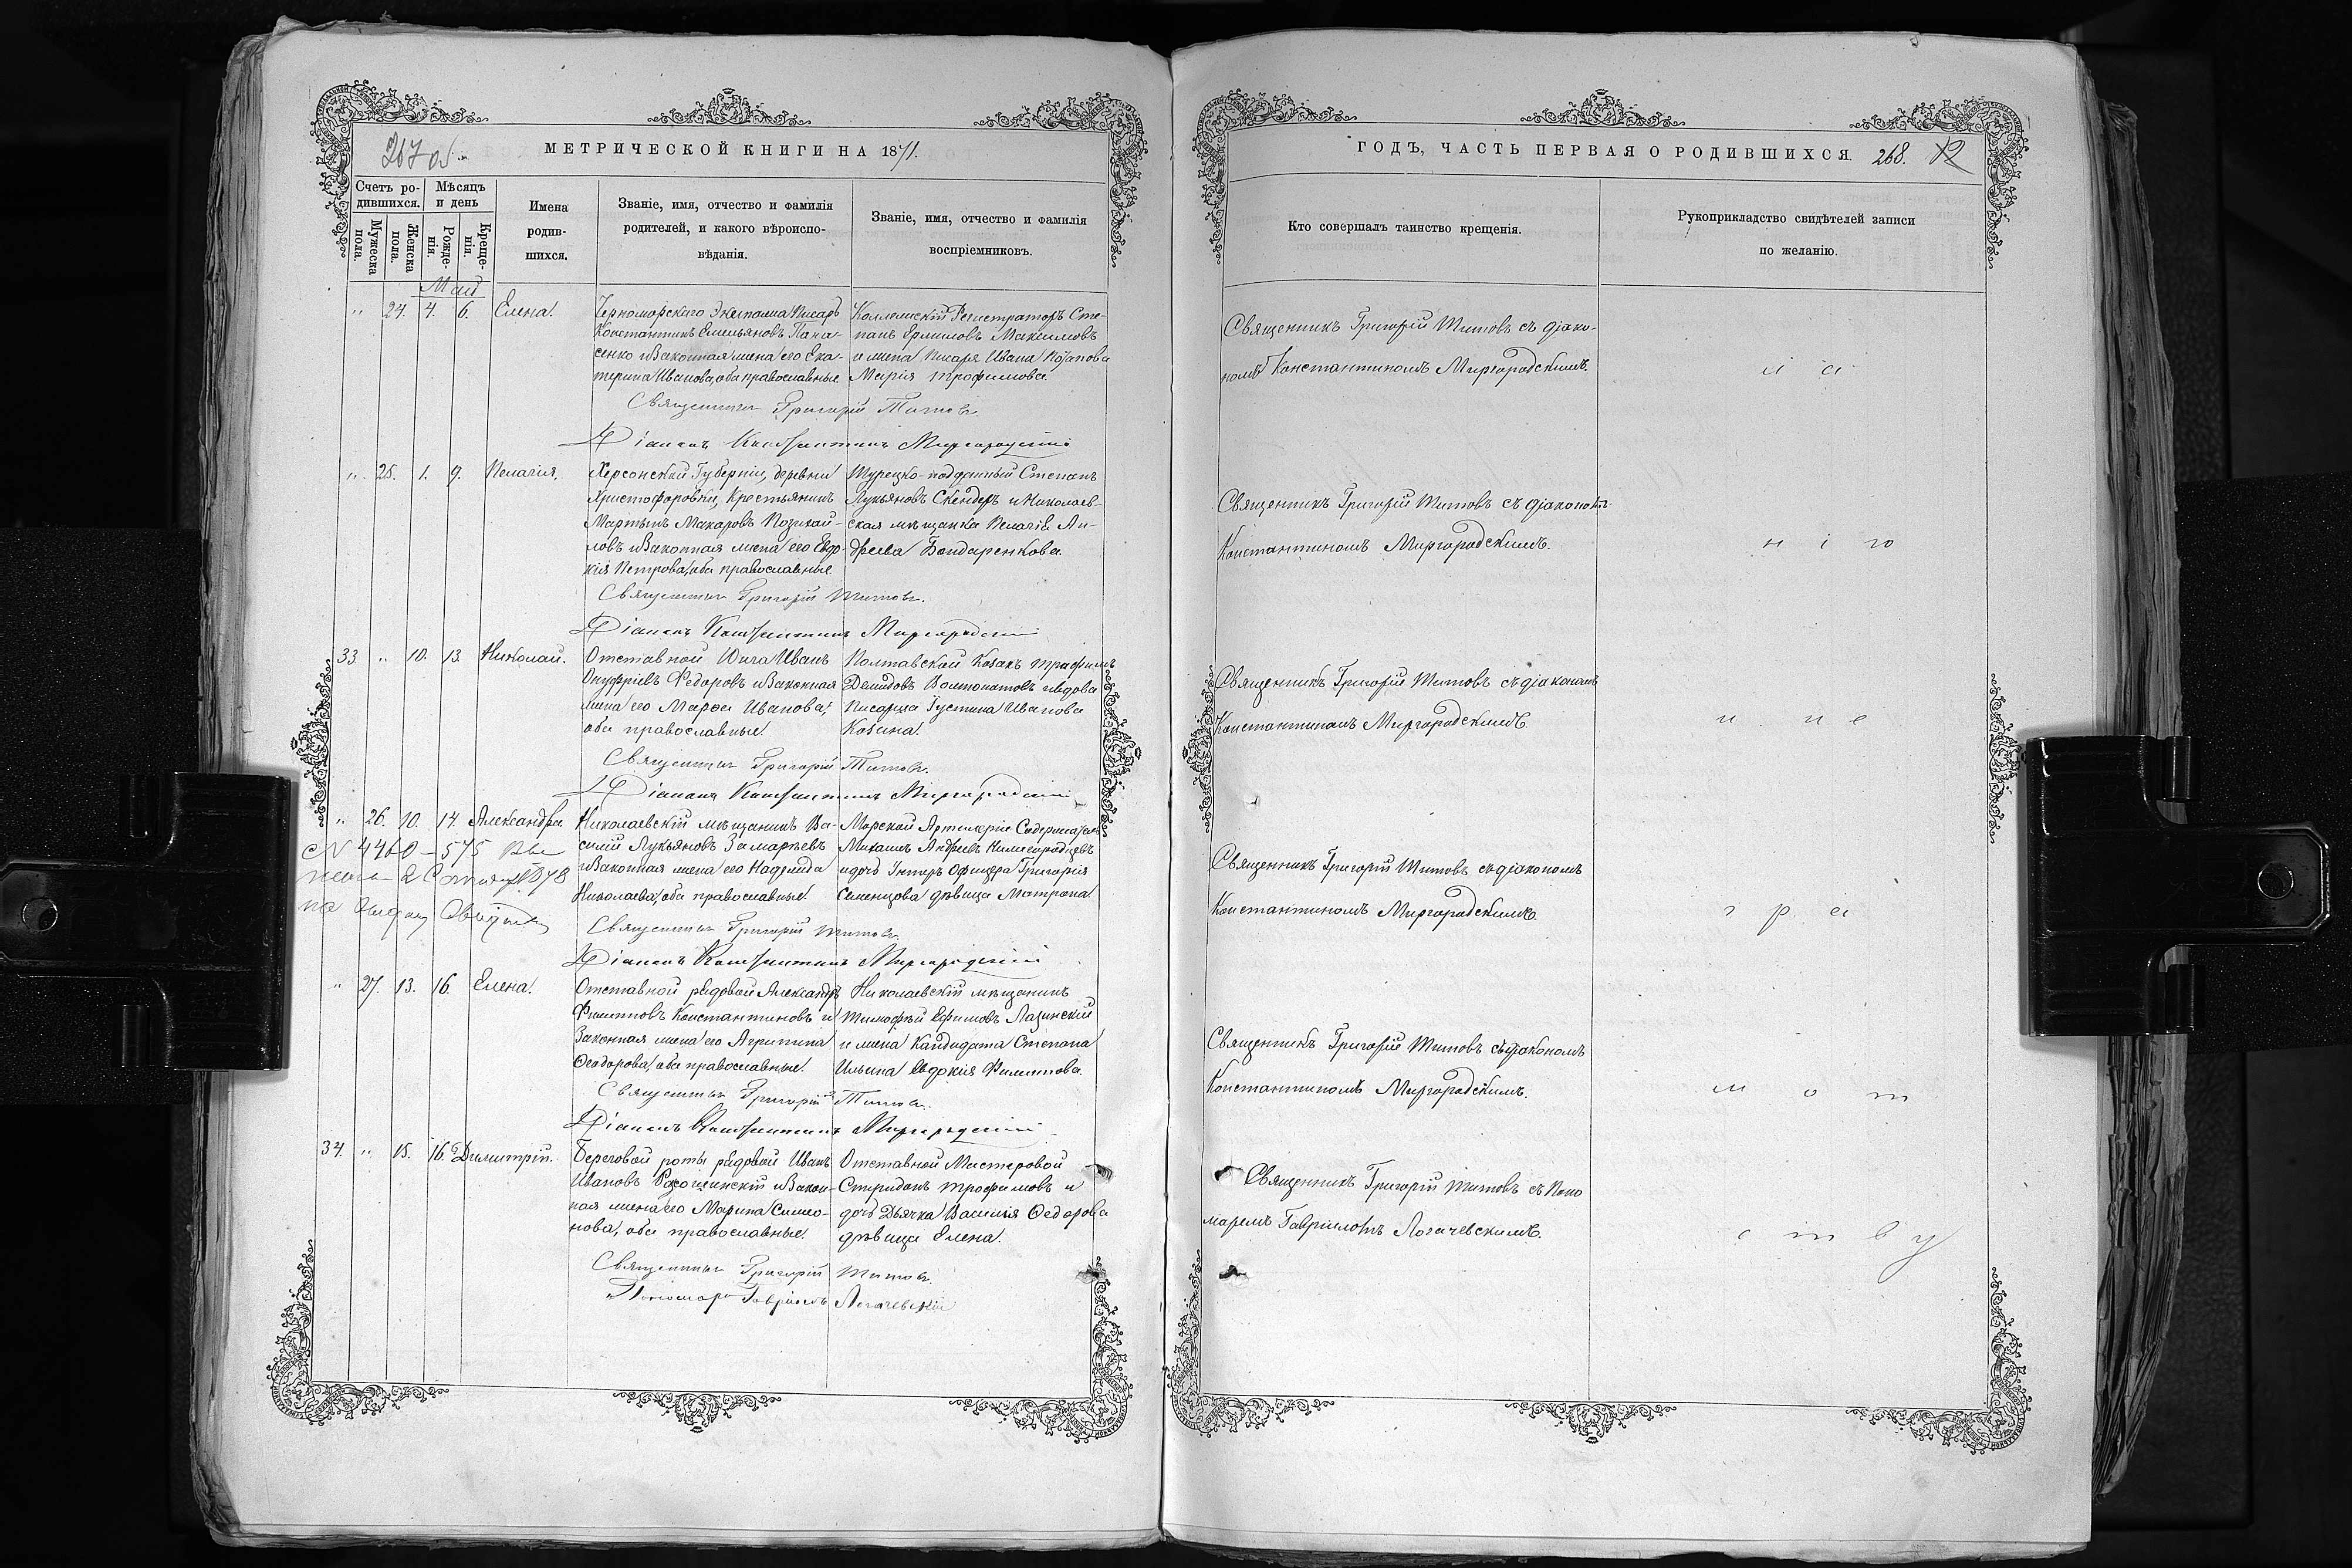 267 об.
МЕТРИЧЕСКОЙ КНИГИ НА 1871.
Счетъ ро-
дившихся.
Мѣсяцъ
и день
Мужеска
пола.
Женска
пола.
Рожде-
нія.
Креще-
нія.
Имена
родив-
шихся.
Званіе, имя, отчество и фамилія
родителей, и какого вѣроиспо-
вѣданія.
Званіе, имя, отчество и фамилія
воспріемниковъ.
Май
" 24. 4. 6. Елена.
Черноморскаго Экипажа Писарь
Константинъ Емельяновъ Пана-
сенко и Законная жена его Ека-
терина Иванова, оба православные
Коллежскій Регистраторъ Сте-
панъ Ермиловъ Максимовъ
и жена Писаря Ивана
Марія Трофимова.
Священникъ Григорій Титовъ
Діаконъ Константинъ Миргородскій
" 25. 1. 9. Пелагія.
Херсонской Губерніи, деревни
Христофоровки, Крестьянинъ
Мартынъ Макаровъ Позихай-
ловъ и Законная жена его Евдо-
кія Петрова, оба православные.
Турецко-подданный Степанъ
Лукьяновъ Скендеръ и Николаев-
ская мѣщанка Пелагія Ан-
дреева Бондаренкова.
Священникъ Григорій Титовъ.
Діаконъ Константинъ Миргородскій
33 " 10. 13. Николай.
Отставной Юнга Иванъ
Онуфріевъ Федоровъ и Законная
жена его Марфа Иванова,
оба православные.
Полтавской Козакъ Трафимъ
Демидовъ и вдова
Писарша Густина Иванова
Козина.
Священникъ Григорій Титовъ.
Діаконъ Константинъ Миргородскій
" 26. 10. 14. Александра
Николаевскій мѣщанинъ Ва-
силій Лукьяновъ Замараевъ
и Законная жена его Надежда
Николаева, оба православные.
Морской Артилеріи Содержатель
Михаилъ Андреевъ Нижегородцевъ
и дочь Унтеръ Офицера Григорія
Семенцова дѣвица Матрона
N 4460 – 575
Священникъ Григорій Титовъ.
Діаконъ Константинъ Миргородскій
" 27. 13. 16. Елена.
Отставной рядовой Александръ
Филиповъ Константиновъ и
Законная жена его Агрипина
Ѳеодорова, оба православные.
Николаевскій мѣщанинъ
Тимофѣй Ефимовъ Лазинскій
и жена Кандидата Степана
Ильина Евдокія Филипова.
Священникъ Григорій Титовъ.
Діаконъ Константинъ Миргородскій
34. " 15. 16. Димитрій.
Береговой роты рядовой Иванъ
Ивановъ и Закон-
ная жена его Марина Симео-
нова, оба православные.
Отставной Мастеровой
Спиридонъ Трофимовъ и
дочь Дьячка Василія Ѳедорова
дѣвица Елена.
Священникъ Григорій Титовъ.
Пономарь Гавріилъ Логачевскій
ГОДЪ, ЧАСТЬ ПЕРВАЯ О РОДИВШИХСЯ. 268. 12
Кто совершалъ таинство крещенія.
Рукоприкладство свидѣтелей записи
по желанію.
Священникъ Григорій Титовъ съ діако-
номъ Константиномъ Миргородскимъ.
Священникъ Григорій Титовъ съ діакономъ
Константиномъ Миргородскимъ.
н і ю
Священникъ Григорій Титовъ съ діакономъ
Константиномъ Миргородскимъ.
Священникъ Григорій Титовъ съ діакономъ
Константиномъ Миргородскимъ.
г р а
Священникъ Григорій Титовъ съ діакономъ
Константиномъ Миргородскимъ.
м о т
Священникъ Григорій Титовъ съ Поно
маремъ Гавріиломъ Логачевскимъ.
с т в у